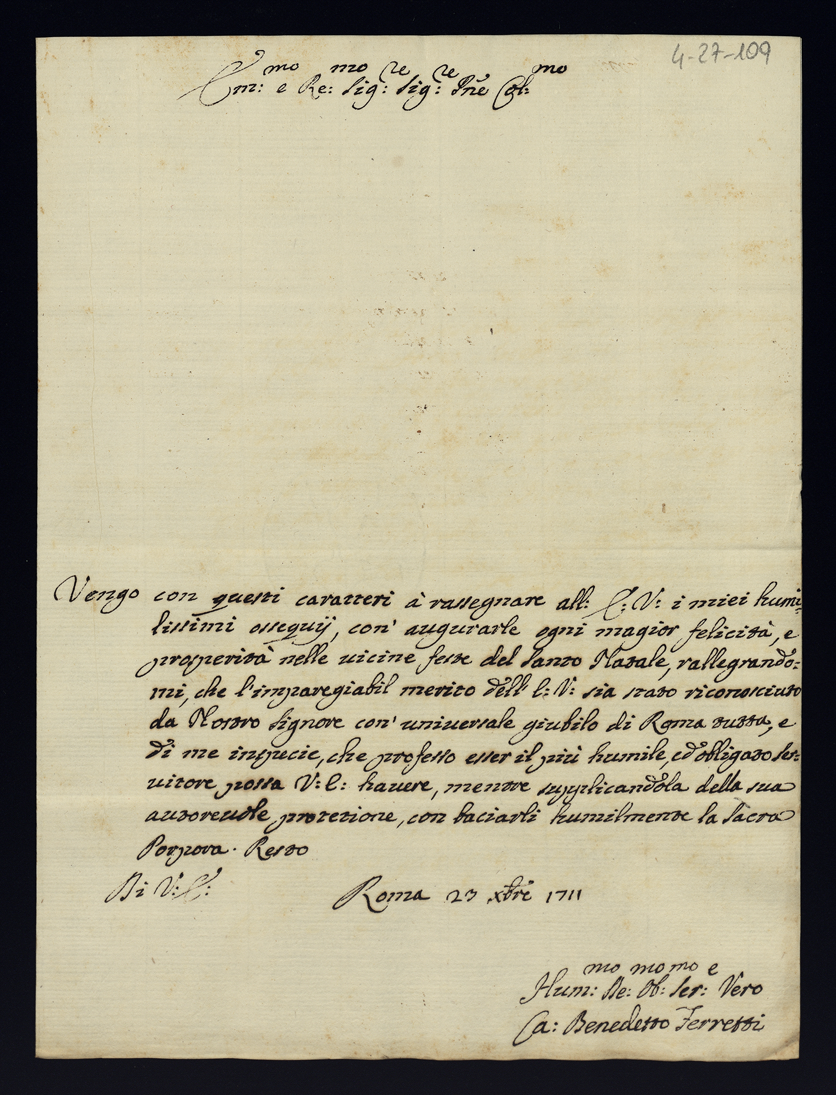 4-27-109
Em:mo e Re:mo Sig:re Sig:re Pne Col:mo
Vengo con questi caratteri à rassegnare all: E: V: i miei humi-
lissimi ossequij, con' augurarle ogni magior felicità, e
prosperità nelle uicine feste del Santo Natale, rallegrando-
mi, che l'impareggiabil merito dell' E: V: sia stato riconosciuto
da Nostro Signore con' uniuersale giubilo di Roma tutta, e
di me inspecie, che professo esser il più humile, ed obligato ser-
uitore possa V: E: hauere, mentre supplicandola della sua
autoreuole protetione, con baciarli humilmente la Sacra
Porpora. Resto
Di V: E:
Roma 23 xbre 1711
Hum:mo De:mo Ob:mo Ser:e Vero
Ca: Benedetto Ferretti